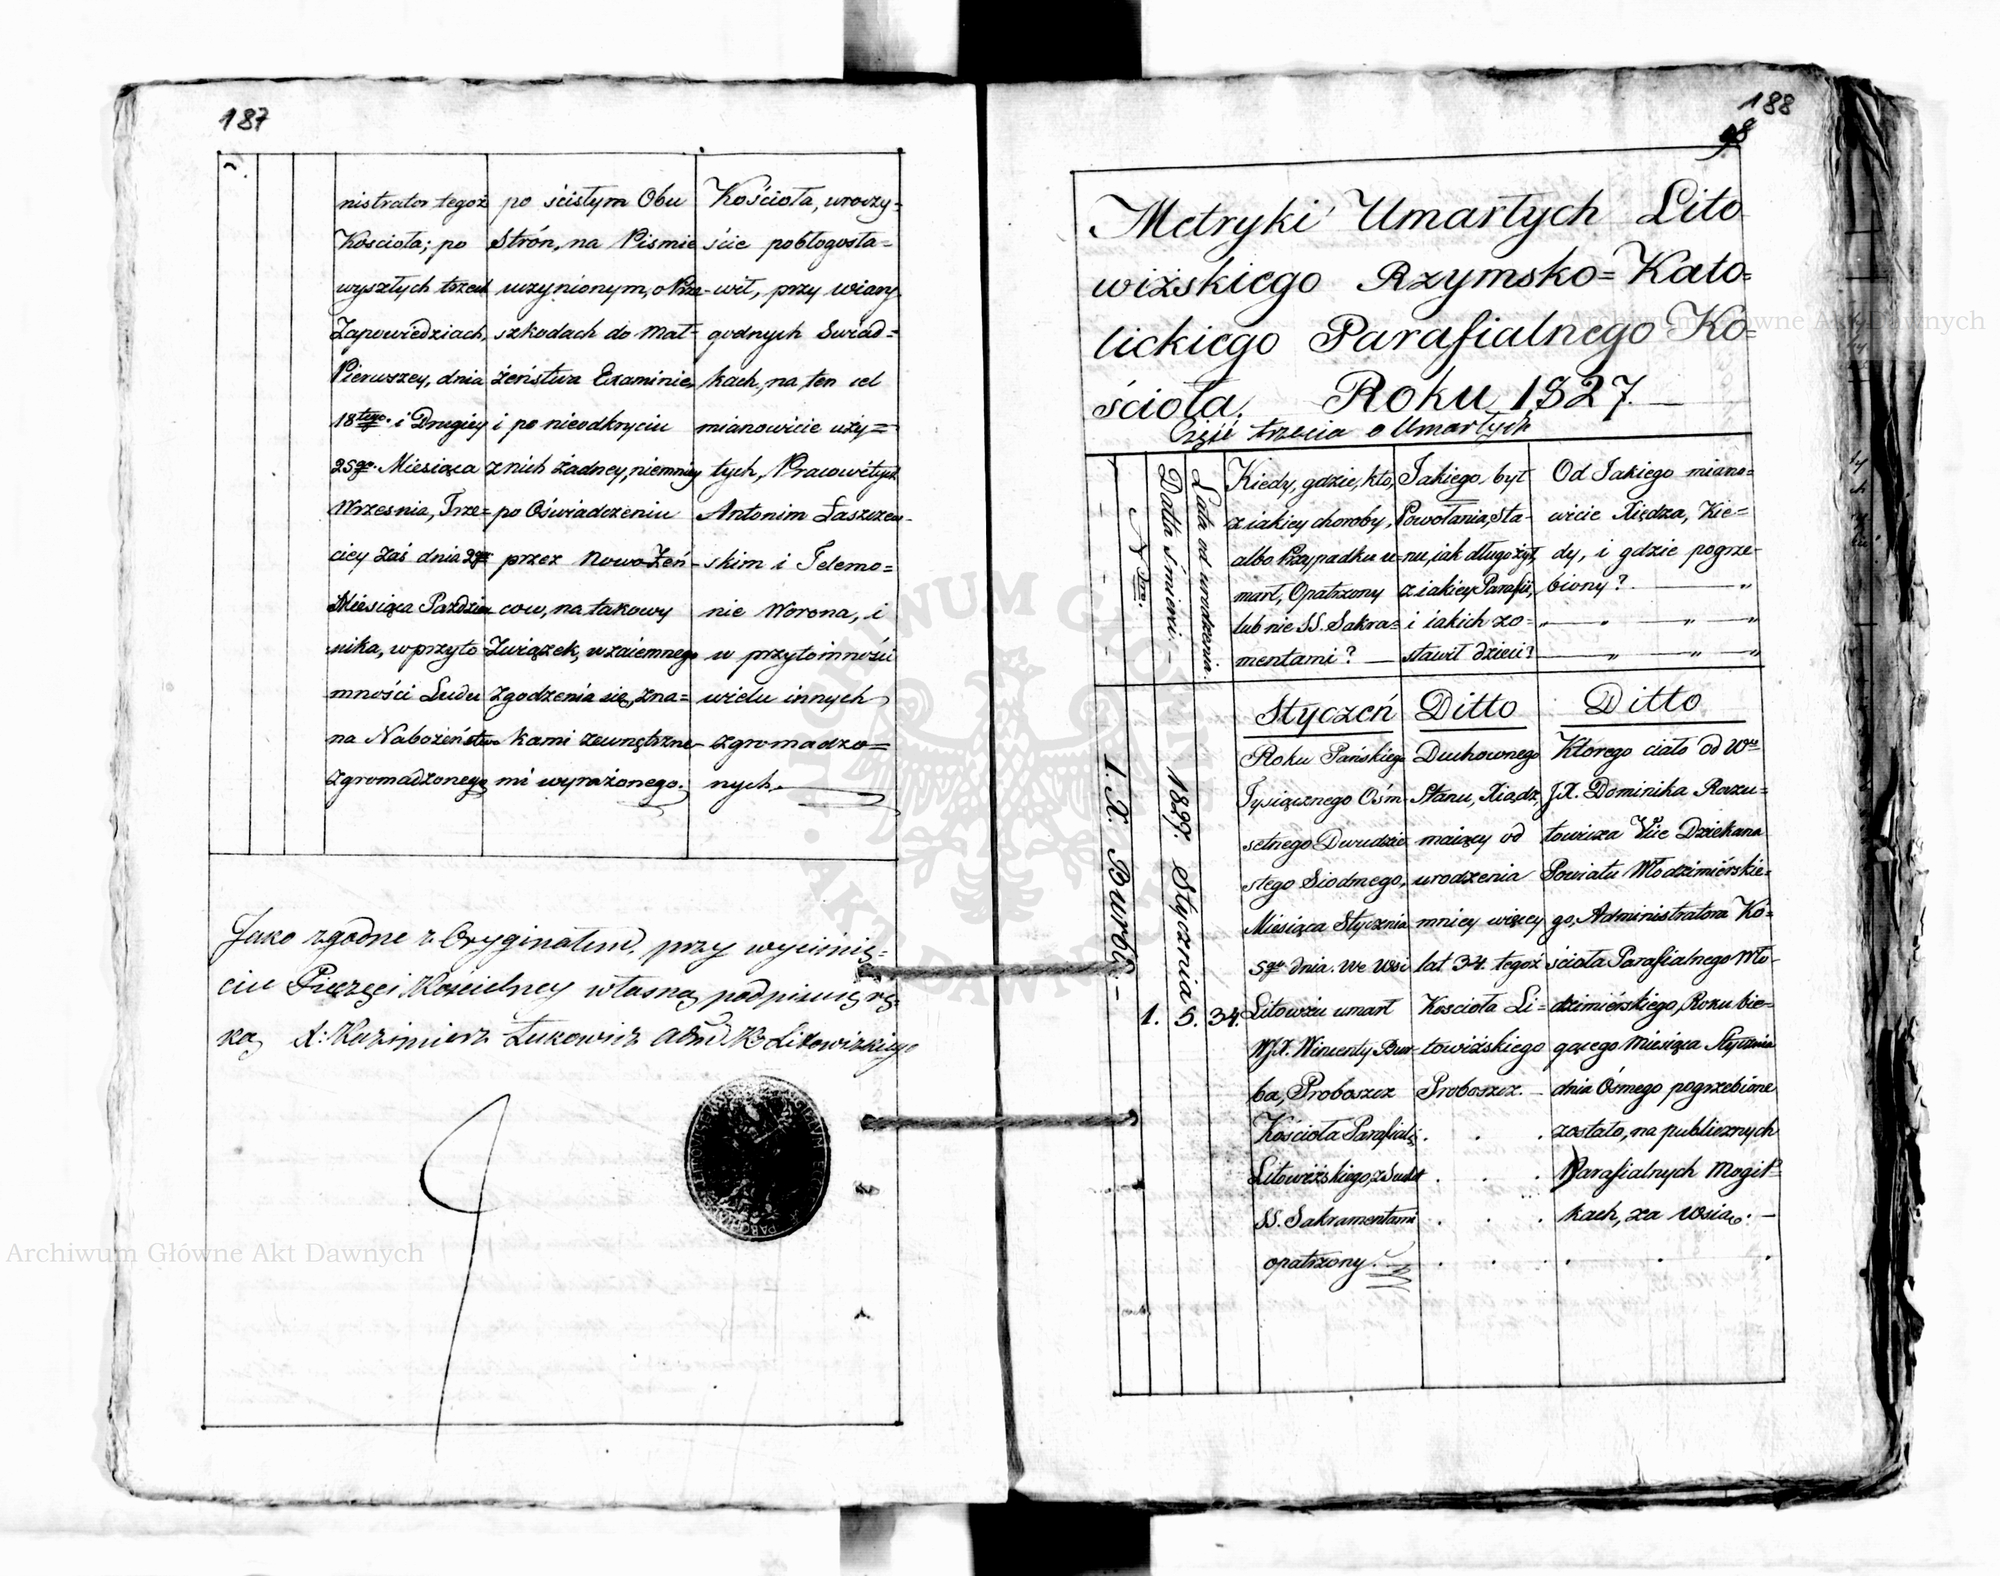 187
nistrator tegoż
Kosciola; po
wyszłych trzech
Zapowiedziach,
Pierwszey, dnia
18tego. i Drugiey
25go. Miesiąca
Wrzesnia, Trze=
ciey zaś dnia 2go
Miesiąca Pazdzier
nika, w przyto
mności Ludu
na Nabożeństwo
zgromadzonego,
po ścisłym Obu
Strón, na Pismie
uczynionym, o Prze-
szkodach do Mał-
żeństwa Examinie,
i po nieodkryciu
z nich żadney, niemniey
po Oświadczeniu
przez Nowo-Żeń-
cow, na takowy
Związek, wzaiemnego
zgodzenia się, zna=
kami zewnętrzne-
mi wyrażonego.
Kościoła, uroczy=
ście pobłogosła=
wił, przy wiary
godnych Swiad=
kach, na ten cel
mianowicie uży=
tych, Pracowitych
Antonim Laszczew-
skim i Telemo=
nie Worona, i
w przytomności
wielu innych
zgromadzo=
nych.
Jako zgodne z Oryginałem, przy wycisnię-
ciu Pieczęci Kościelney własną podpisuię rę-
ką X: Kazimierz Łukowicz Adm. K. Litowizkiego
188
98
Metryki Umarłych Lito
wiżskiego Rzymsko=Kato=
lickiego Parafialnego Ko=
ścioła. Roku 1827.
Część trzecia o Umarłych
Nro.
Datta śmierci.
Lata od urodzenia.
Kiedy, gdzie, kto,
z iakiey choroby,
albo Przypadku u-
marł, Opatrzony
lub nie SS. Sakra=
mentami?
Jakiego, był
Powołania, Sta-
nu, iak długo żył,
z iakiey Parafii,
i iakich zo=
stawił dzieci?
Od Jakiego miano=
wicie Xiędza, Kie=
dy, i gdzie pogrze-
biony?
Styczeń Ditto Ditto
1. X. Burba
1.
1827. Stycznia
5.
34.
Roku Pańskiego
Tysiącznego Ośm-
setnego Dwudzie
stego Siodmego,
Miesiąca Stycznia
5go. dnia. We Wsi
Litowiżu umarł
WJX. Wincenty Bur-
ba, Proboszcz
Kościoła Parafial:
Litowiżskiego,
SS. Sakramentami
opatrzony.
Duchownego
Stanu, Xiądz,
maiący od
urodzenia
mniey więcey
lat 34. tegoż
Kosciola Li=
towiżskiego
Proboszcz.
Którego ciało od W.
JX. Dominika Razu=
towicza Vice Dziekana
Powiatu Włodzimiérskie=
go, Administratora Ko=
ścioła Parafialnego Wło-
dzimiérskiego, Roku bie=
gącego Miesiąca Stycznia
dnia Ósmego pogrzebione
zostało, na publicznych
Parafialnych Mogił=
kach, za Wsią.
Archiwum Główne Akt Dawnych
Archiwum Główne Akt Dawnych
ARCHIWUM GŁÓWNE
AKT DAWNYCH